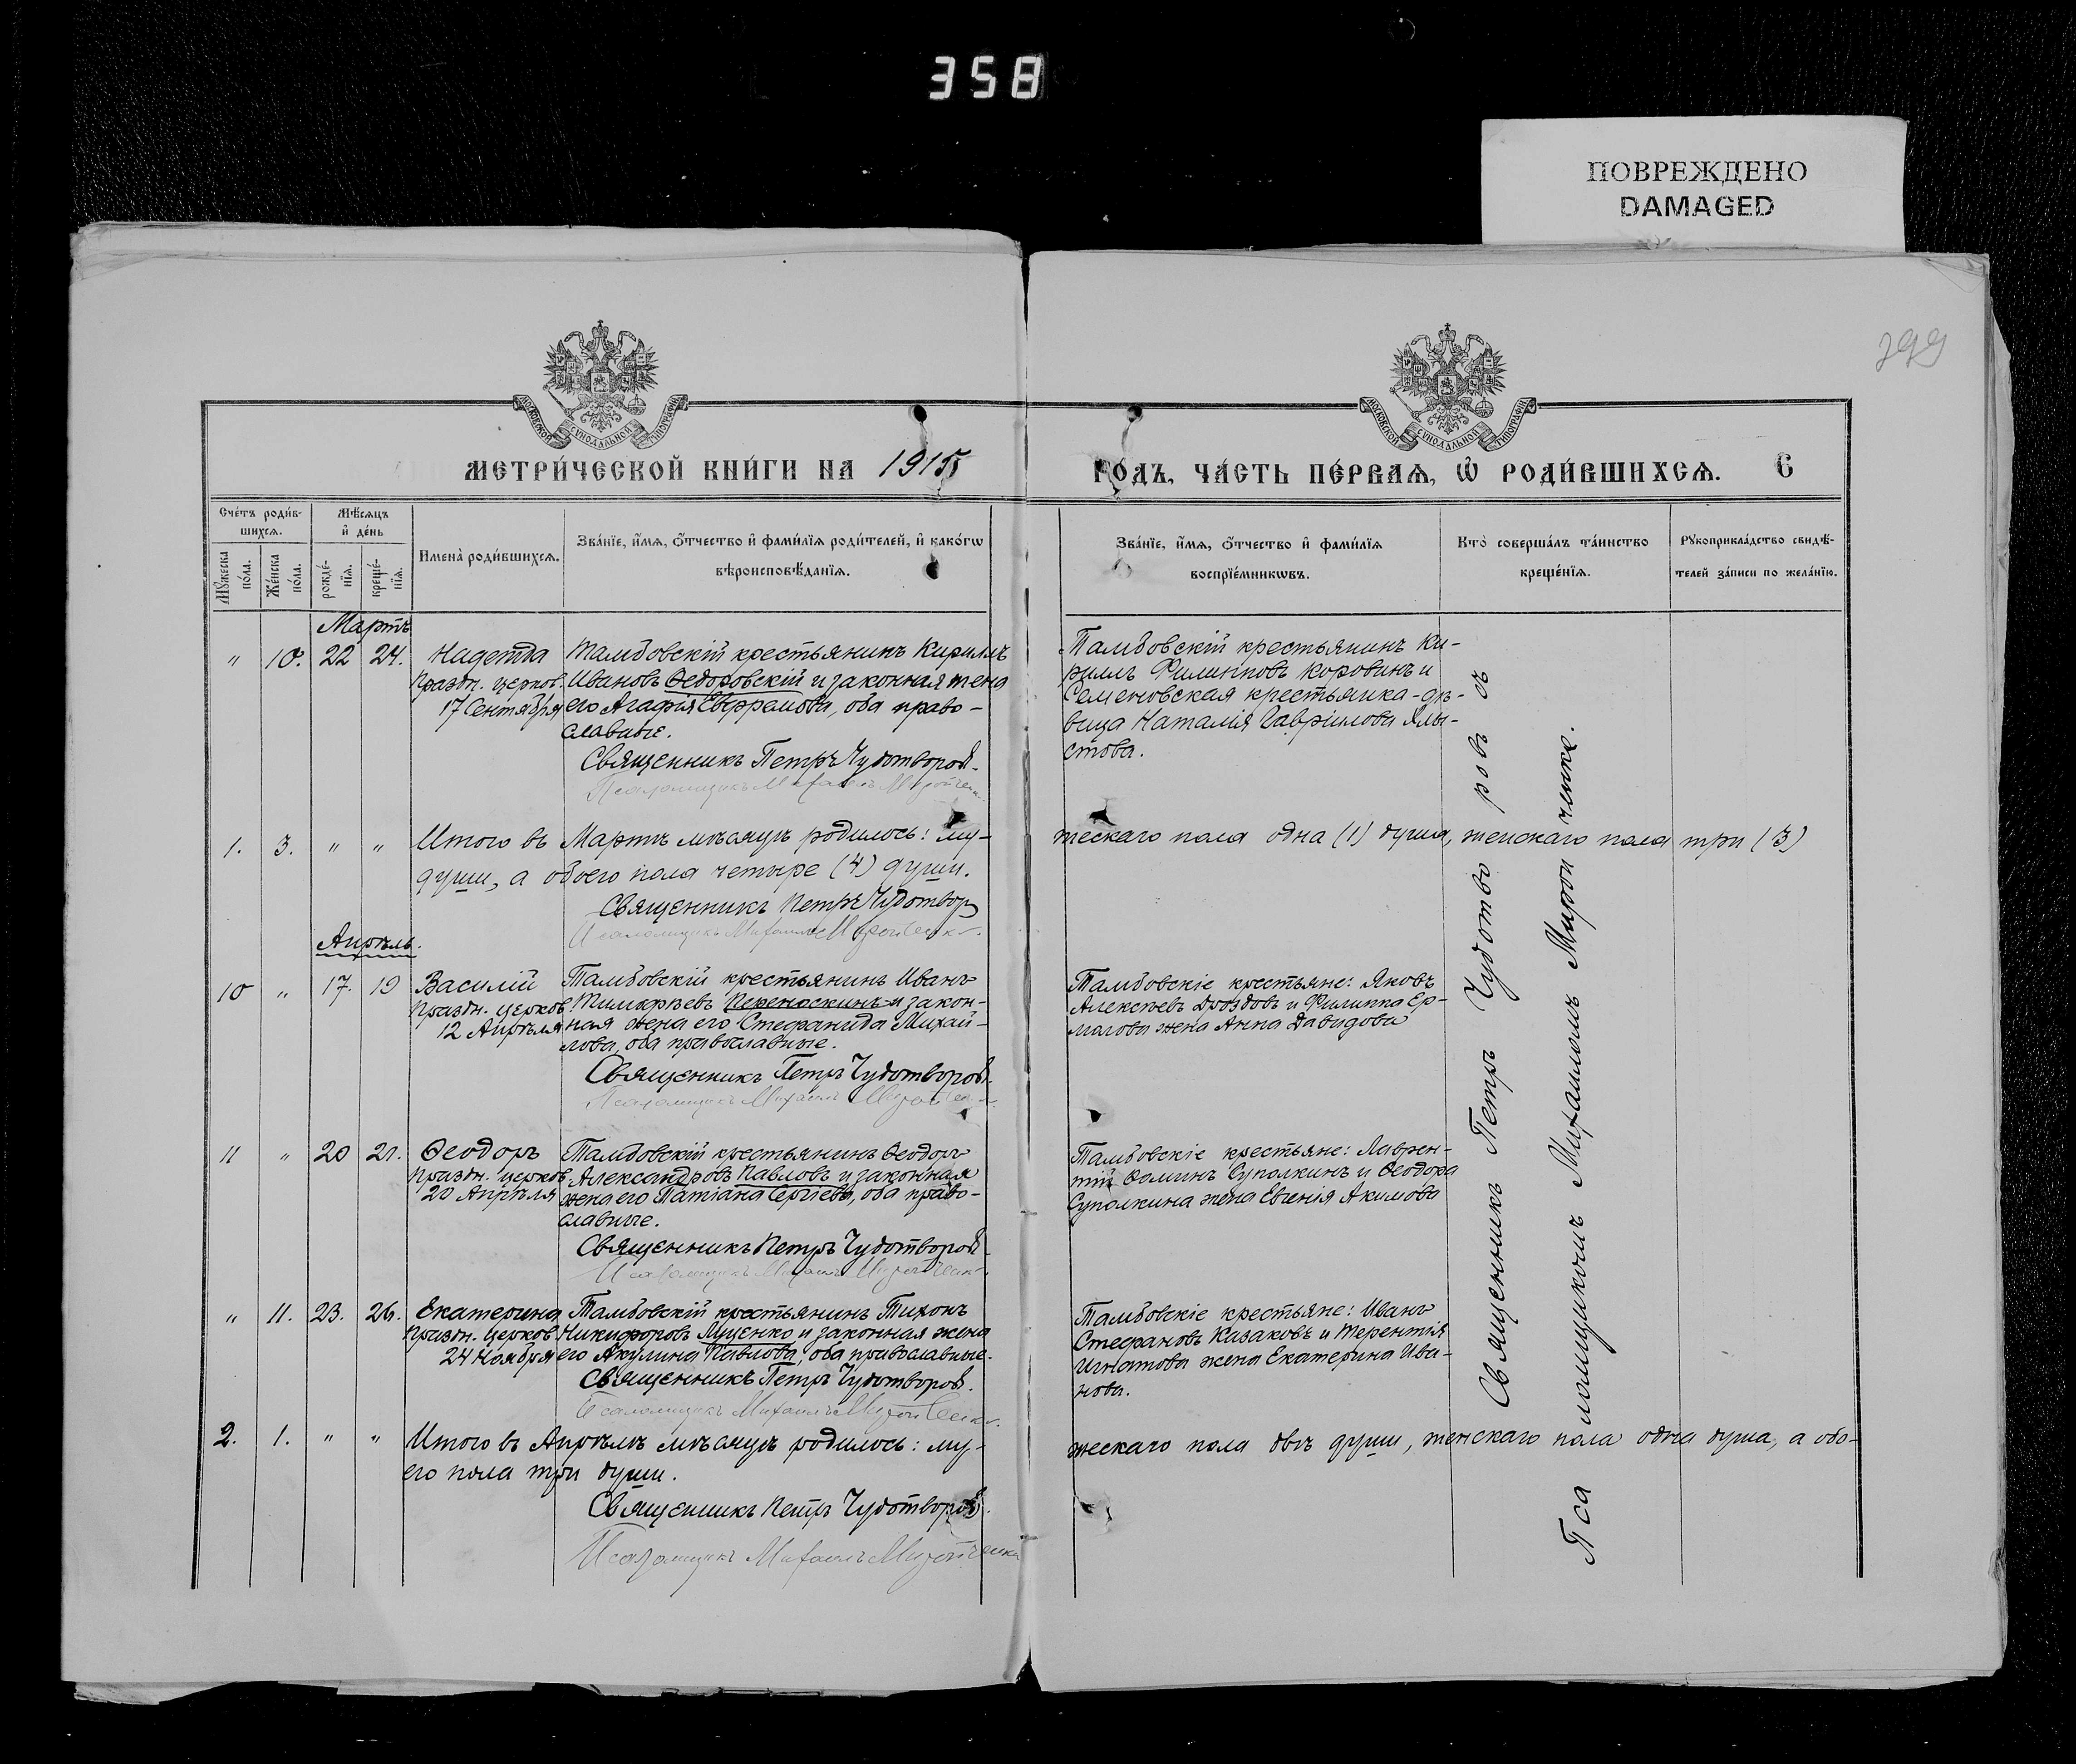 358
ПОВРЕЖДЕНО
DAMAGED
299
МОСКОВСКОЙ СѴНОДАЛЬНОЙ ТИПОГРАФІИ
МОСКОВСКОЙ СѴНОДАЛЬНОЙ ТИПОГРАФІИ
МЕТРИ́ЧЕСКОЙ КНИ́ГИ НА 1915
ГО́ДЪ, ЧА́СТЬ ПЕ́РВАѦ, Ѡ҆ РОДИ́ВШИХСѦ. 6
Сче́тъ роди́в-
шихсѧ.
Мꙋ́жеска по́ла.
Же́нска по́ла.
Мѣ́сяцъ
и҆ де́нь
рожде́-
нїѧ.
креще́-
нїѧ.
Имена̀ роди́вшихсѧ.
Зва́нїе, и҆́мѧ, ѻ҆́тчество и҆ фами́лїѧ роди́телей, и҆ како́гѡ
вѣроисповѣ́данїѧ.
Зва́нїе, и҆́мѧ, ѻ҆́тчество и҆ фами́лїѧ
воспрїе́мникѡвъ.
Кто̀ соверша́лъ та́инство
креще́нїѧ.
Рꙋкоприкла́дство свидѣ́-
телей за́писи по жела́нїю.
Мартъ
" 10. 22 24. Надежда
Праздн. церков.
17 Сентября
Тамбовскій крестьянинъ Кириллъ
Ивановъ Ѳедоровскій и законная жена
его Агафія Евфремова, оба право-
славные.
Священникъ Петръ Чудотворовъ.
Псаломщикъ Михаилъ Миронченко.
Тамбовскій крестьянинъ Ки-
риллъ Филипповъ Коровинъ и
Семеновская крестьянка-дѣ-
вица Наталія Гавріилова Хлы-
стова.
1. 3. " " Итого въ Мартѣ мѣсяцѣ родилось: му-
жескаго пола одна (1) душа, женскаго пола три (3)
души, а обоего пола четыре (4) души.
Священникъ Петръ Чудотвор
Псаломщикъ Михаилъ Миронченко.
Апрѣль.
10 " 17. 19 Василій
Праздн. церков.
12 Апрѣля
Тамбовскій крестьянинъ Иванъ
Тимофеевъ Переноскинъ и закон-
ная жена его Стефанида Михай-
лова, оба православные.
Священникъ Петръ Чудотворовъ.
Псаломщикъ Михаилъ Миронченко.
Тамбовскіе крестьяне: Яковъ
Алексѣевъ Дроздовъ и Филиппа Ер-
макова жена Анна Давидова
11 " 20 21. Ѳеодоръ
Праздн. церков.
20 Апрѣля
Тамбовскій крестьянинъ Ѳеодоръ
Александровъ Павловъ и законная
жена его Татіана Сергіева, оба право-
славные.
Священникъ Петръ Чудотворовъ.
Псаломщикъ Михаилъ Миронченко.
Тамбовскіе крестьяне: Лаврен-
тій Ѳоминъ Суполкинъ и Ѳеодора
Суполкина жена Евгенія Акимова
" 11. 23. 26. Екатерина
Праздн. церков.
24 Ноября
Тамбовскій крестьянинъ Тихонъ
Никифоровъ Луценко и законная жена
его Акулина Павлова, оба православные.
Священникъ Петръ Чудотворовъ.
Псаломщикъ Михаилъ Миронченко.
Тамбовскіе крестьяне: Иванъ
Стефановъ Казаковъ и Терентія
Игнатова жена Екатерина Ива-
нова.
2. 1. " " Итого въ Апрѣлѣ мѣсяцѣ родилось: му-
жескаго пола двѣ души, женскаго пола одна душа, а обо-
его пола три души.
Священникъ Петръ Чудотворовъ.
Псаломщикъ Михаилъ Миронченко
Священникъ Петръ Чудотворовъ съ
Псаломщикомъ Михаиломъ Миронченко.